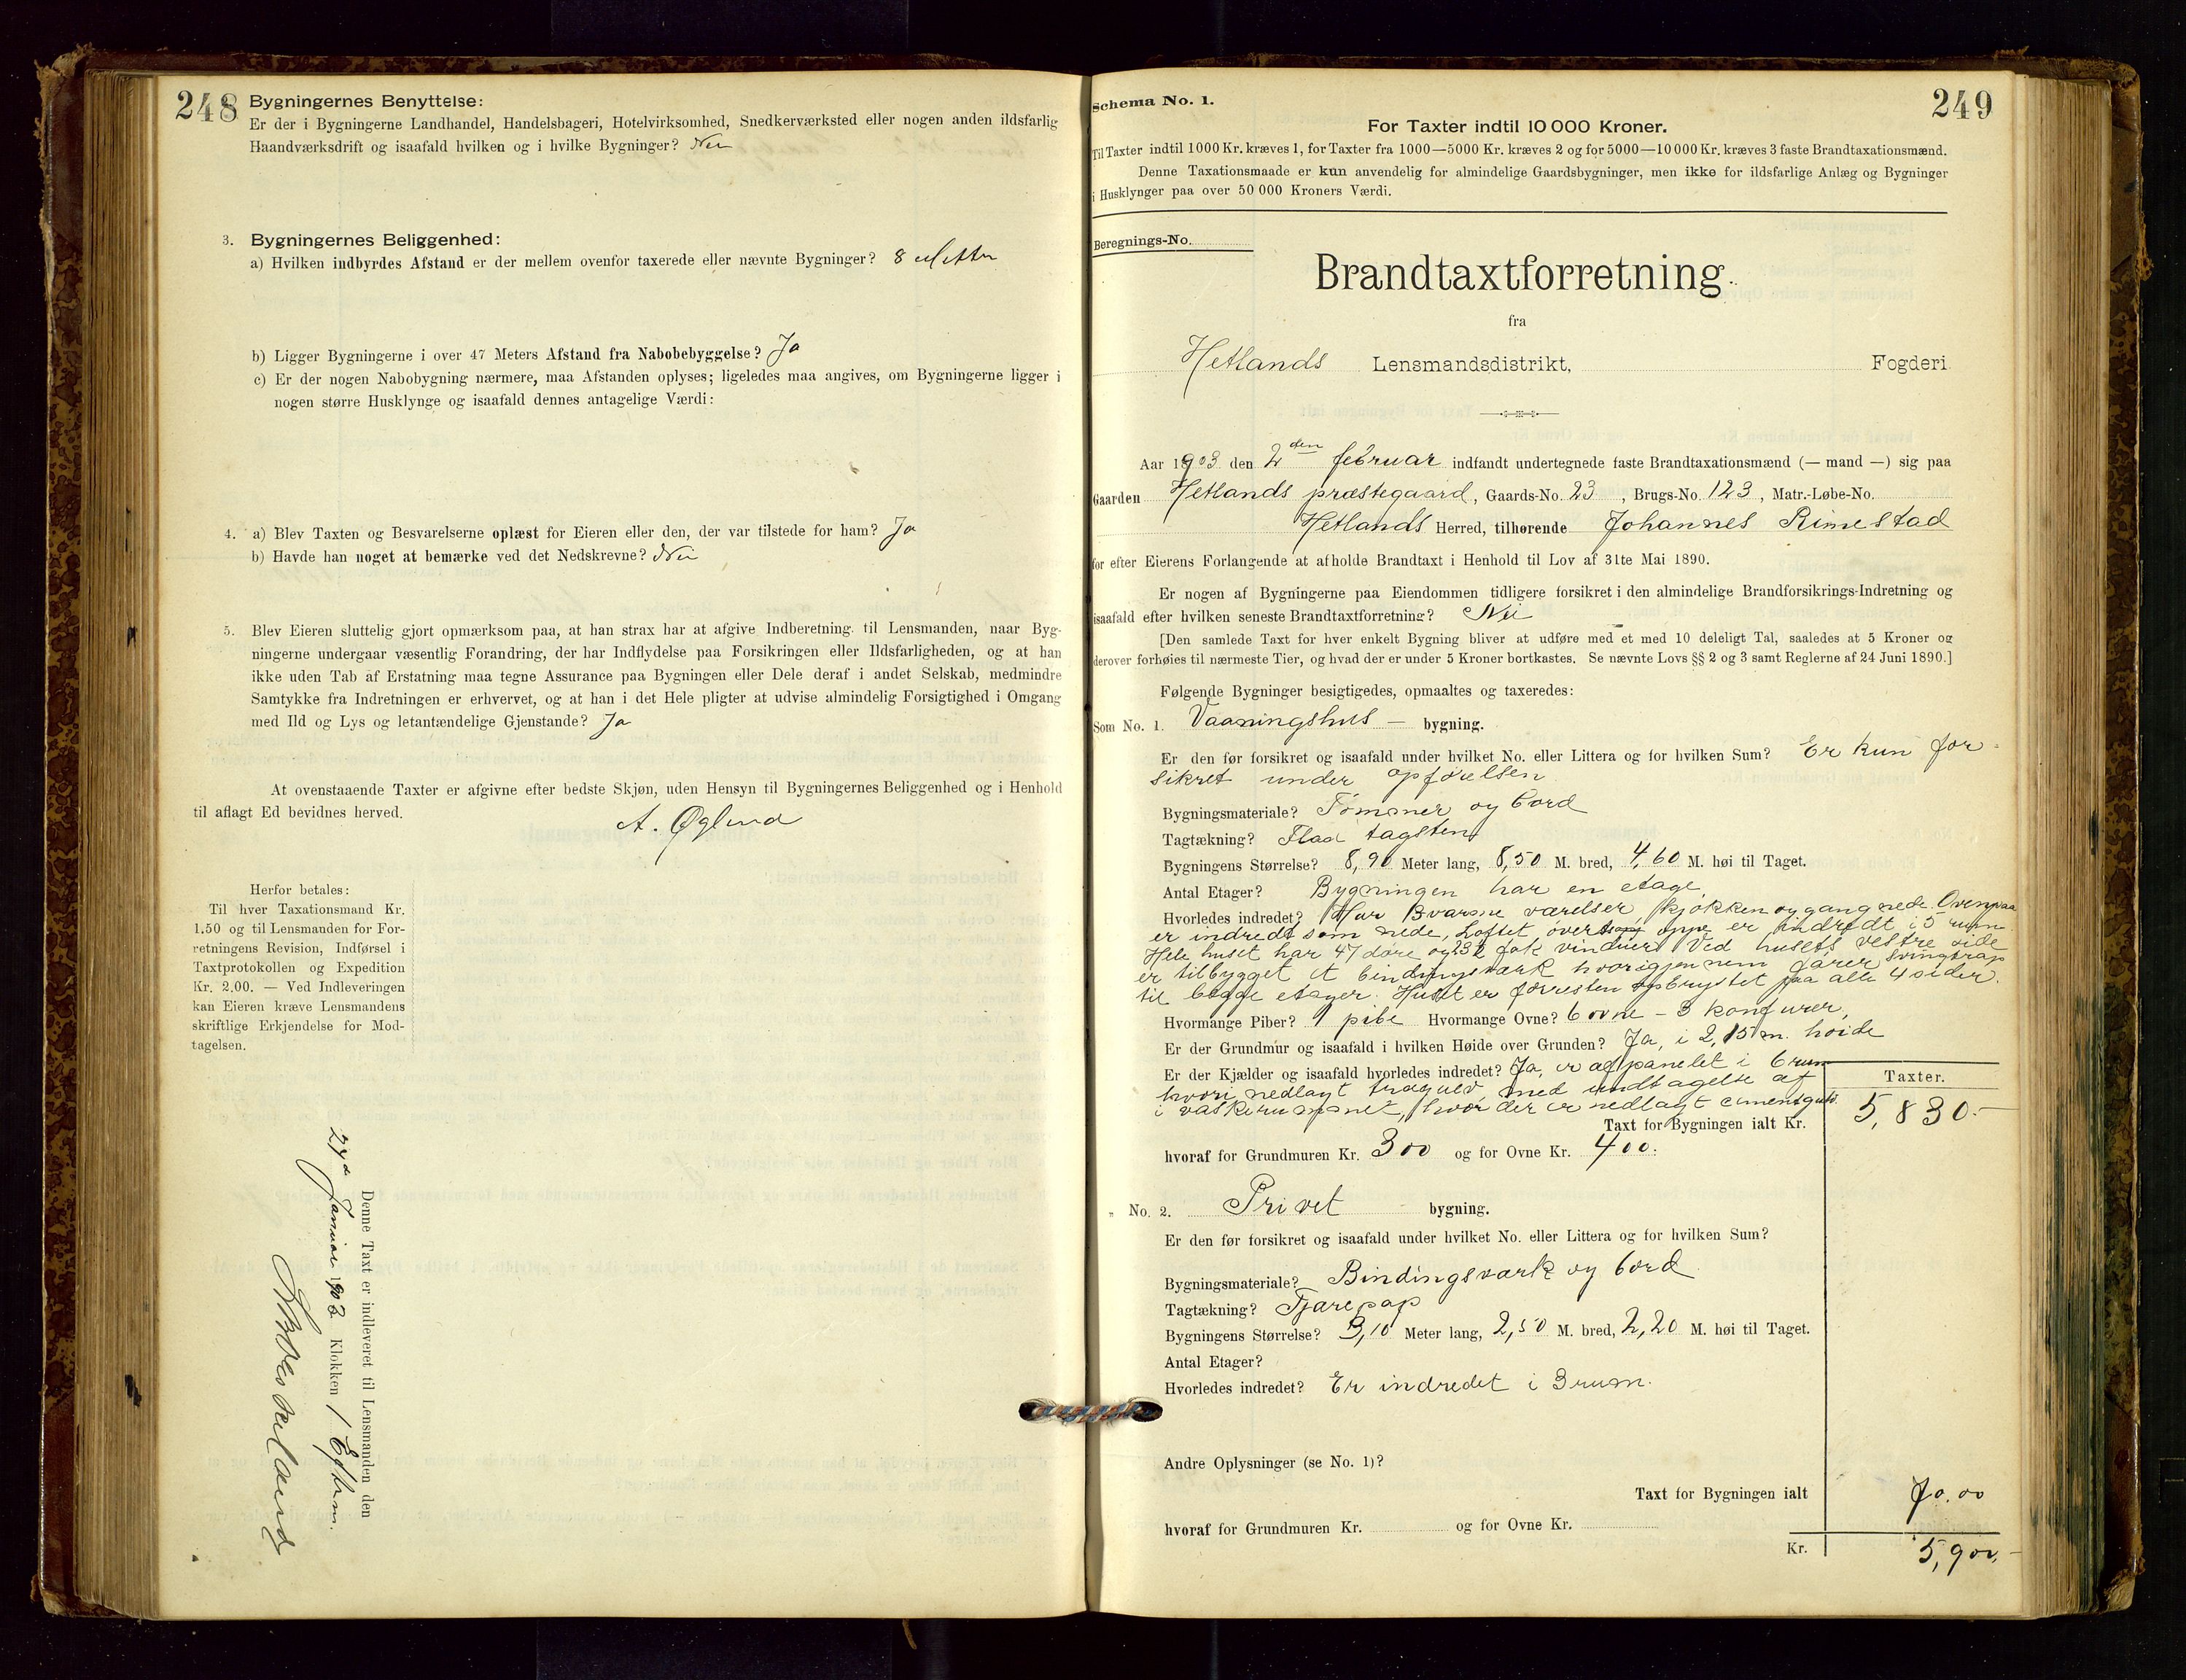 248
Bygningernes Benyttelse:
Er der i Bygningerne Landhandel, Handelsbageri, Hotelvirksomhed, Snedkerværksted eller nogen anden ildsfarlig
Haandværksdrift og isaafald hvilken og i hvilke Bygninger? Nei
3. Bygningernes Beliggenhed:
a) Hvilken indbyrdes Afstand er der mellem ovenfor taxerede eller nævnte Bygninger? 8 Metter
b) Ligger Bygningerne i over 47 Meters Afstand fra Nabobebyggelse? Ja
c) Er der nogen Nabobygning nærmere, maa Afstanden oplyses; ligeledes maa angives, om Bygningerne ligger i
nogen større Husklynge og isaafald dennes antagelige Værdi:
4. a) Blev Taxten og Besvarelserne oplæst for Eieren eller den, der var tilstede for ham? Ja
b) Havde han noget at bemærke ved det Nedskrevne? Nei
5. Blev Eieren sluttelig gjort opmærksom paa, at han strax har at afgive Indberetning til Lensmanden, naar Byg-
ningerne undergaar væsentlig Forandring, der har Indflydelse paa Forsikringen eller Ildsfarligheden, og at han
ikke uden Tab af Erstatning maa tegne Assurance paa Bygningen eller Dele deraf i andet Selskab, medmindre
Samtykke fra Indretningen er erhvervet, og at han i det Hele pligter at udvise almindelig Forsigtighed i Omgang
med Ild og Lys og letantændelige Gjenstande? Ja
At ovenstaaende Taxter er afgivne efter bedste Skjøn, uden Hensyn til Bygningernes Beliggenhed og i Henhold
til aflagt Ed bevidnes herved.
A. Øglend
Herfor betales:
Til hver Taxationsmand Kr.
1.50 og til Lensmanden for For-
retningens Revision, Indførsel i
Taxtprotokollen og Expedition
Kr. 2.00. — Ved Indleveringen
kan Eieren kræve Lensmandens
skriftlige Erkjendelse for Mod-
tagelsen.
Denne Taxt er indleveret til Lensmanden den
Januar 1903 Klokken 1 Efterm.
Schema No. 1.
249
For Taxter indtil 10 000 Kroner.
Til Taxter indtil 1000 Kr. kræves 1, for Taxter fra 1000—5000 Kr. kræves 2 og for 5000—10 000 Kr. kræves 3 faste Brandtaxationsmænd.
Denne Taxationsmaade er kun anvendelig for almindelige Gaardsbygninger, men ikke for ildsfarlige Anlæg og Bygninger
i Husklynger paa over 50 000 Kroners Værdi.
Beregnings-No.
Brandtaxtforretning
fra
Hetlands Lensmandsdistrikt, Fogderi
Aar 1903 den 2den februar indfandt undertegnede faste Brandtaxationsmænd (— mand —) sig paa
Gaarden Hetlands præstegaard, Gaards-No. 23, Brugs-No. 123, Matr.-Løbe-No.
Hetlands Herred, tilhørende Johannes Rimestad
for efter Eierens Forlangende at afholde Brandtaxt i Henhold til Lov af 31te Mai 1890.
Er nogen af Bygningerne paa Eiendommen tidligere forsikret i den almindelige Brandforsikrings-Indretning og
isaafald efter hvilken seneste Brandtaxtforretning? Nei
[Den samlede Taxt for hver enkelt Bygning bliver at udføre med et med 10 deleligt Tal, saaledes at 5 Kroner og
derover forhøies til nærmeste Tier, og hvad der er under 5 Kroner bortkastes. Se nævnte Lovs §§ 2 og 3 samt Reglerne af 24 Juni 1890.]
Følgende Bygninger besigtigedes, opmaaltes og taxeredes:
Som No. 1. Vaaningshus — bygning.
Er den før forsikret og isaafald under hvilket No. eller Littera og for hvilken Sum? Er kun for-
sikret under opførelsen
Bygningsmateriale? Tømmer og bord
Tagtækning? Flad tagsten
Bygningens Størrelse? 8,90 Meter lang, 8,50 M. bred, 4,60 M. høi til Taget.
Antal Etager? Bygningen har en etage
Hvorledes indredet? Har 3 varme værelser, kjøkken og gang nede. Ovenpaa
er indredt som nede, Loftet over oppe er indredt i 5 rum
Hele huset har 47 døre og 32 fak vinduer. Ved husets vestre side
er tilbygget et bindingsværk hvorigjennem fører svingtrap
til begge etager. Huset er forresten opbrystet paa alle 4 sider.
Hvormange Piber? 1 pibe Hvormange Ovne? 6 ovne — 3 komfurer,
Er der Grundmur og isaafald i hvilken Høide over Grunden? Ja, i 2,15 m. høide
Er der Kjælder og isaafald hvorledes indredet? Ja, er afpanelet i 6 rum
hvori nedlagt trægulv, med undtagelse af
i vaskerummet, hvor der er nedlagt cementgulv.
Taxter.
Taxt for Bygningen ialt Kr. 5,830.—
hvoraf for Grundmuren Kr. 300 og for Ovne Kr. 400.
„ No. 2. Privet bygning.
Er den før forsikret og isaafald under hvilket No. eller Littera og for hvilken Sum?
Bygningsmateriale? Bindingsværk og bord
Tagtækning? Tjærepap
Bygningens Størrelse? 3,10 Meter lang, 2,50 M. bred, 2,20 M. høi til Taget.
Antal Etager?
Hvorledes indredet? Er indredet i 3 rum.
Andre Oplysninger (se No. 1)?
Taxt for Bygningen ialt 70.00
hvoraf for Grundmuren Kr. og for Ovne Kr.
Kr. 5,900,—